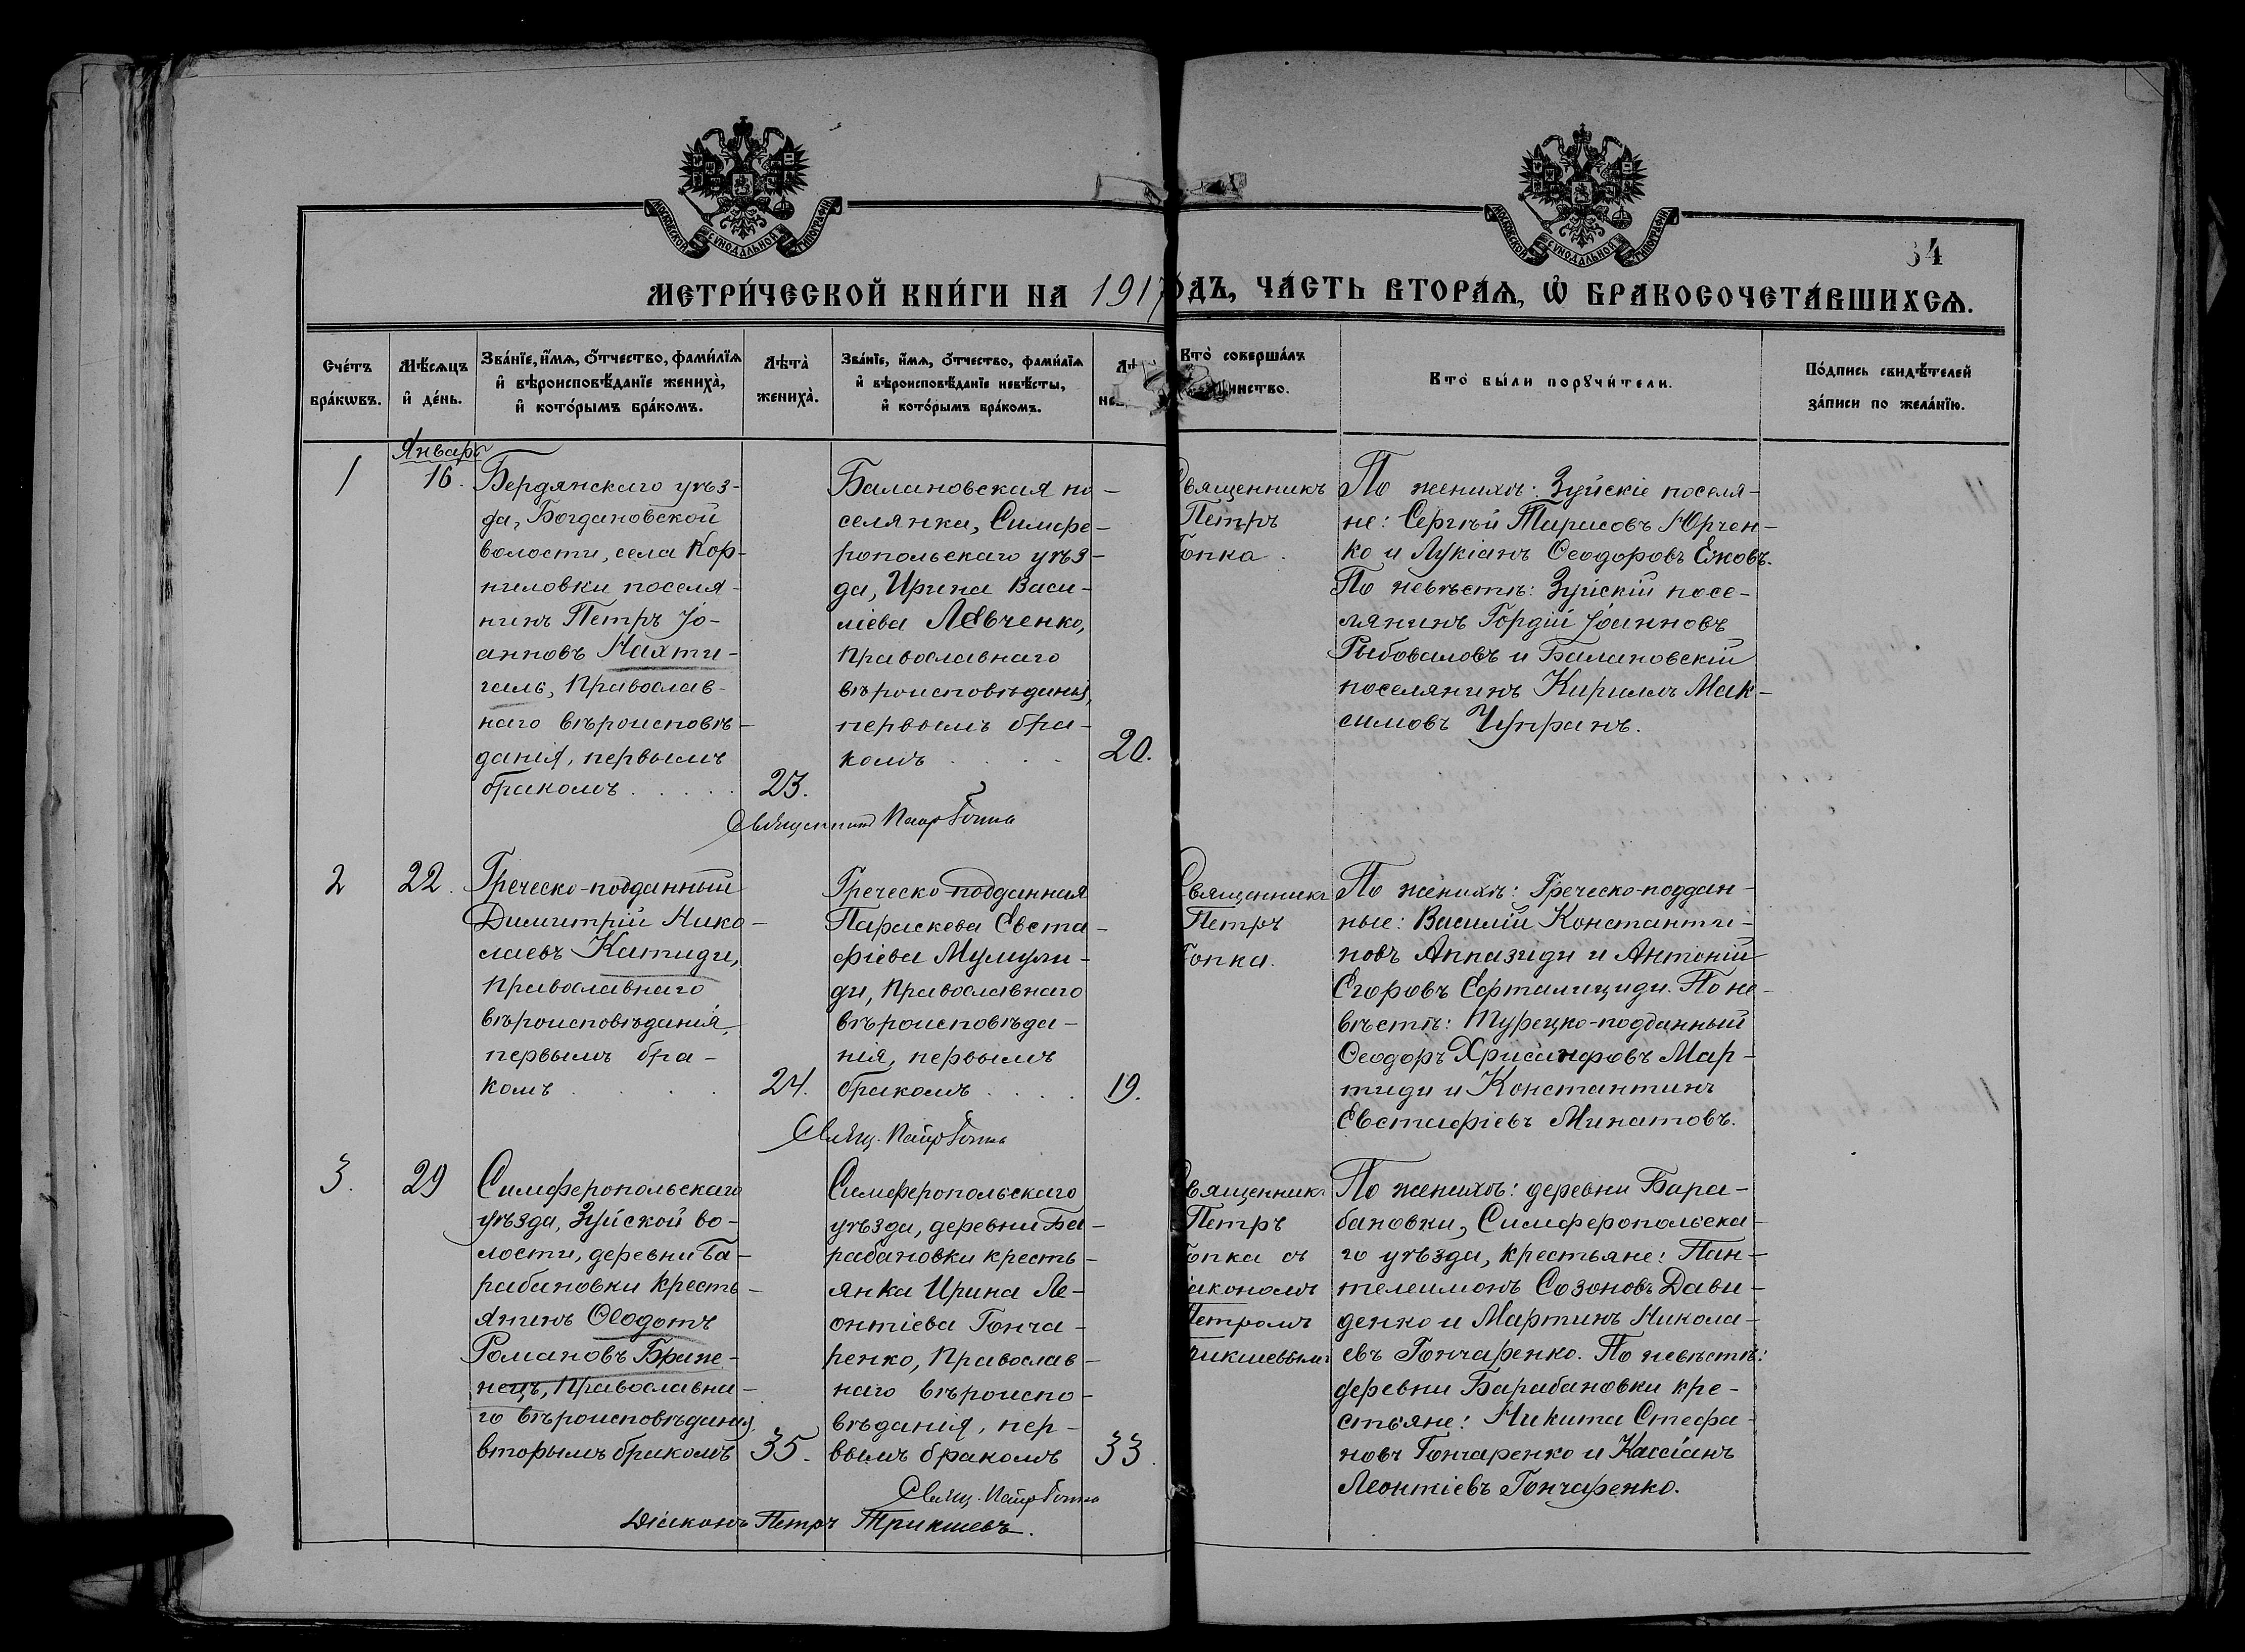 МОСКОВСКОЙ СѴНОДАЛЬНОЙ ТИПОГРАФІИ
МОСКОВСКОЙ СѴНОДАЛЬНОЙ ТИПОГРАФІИ
34
МЕТРИ́ЧЕСКОЙ КНИ́ГИ НА 1917
ОДЪ, ЧА́СТЬ ВТОРА́Ѧ, Ѡ҆ БРАКОСОЧЕТА́ВШИХСѦ.
Сче́тъ
бра́кѡвъ.
Мѣ́сѧцъ
и҆ де́нь.
Зва́нїе, и҆́мѧ, ѻ҆́тчество, фами́лїѧ
и҆ вѣроисповѣ́данїе жениха̀,
и҆ кото́рымъ бра́комъ.
Лѣ́та̀
жениха̀.
Зва́нїе, и҆́мѧ, ѻ҆́тчество, фами́лїѧ
и҆ вѣроисповѣ́данїе невѣ́сты,
и҆ кото́рымъ бра́комъ.
Кто̀ соверша́лъ
инство.
Кто̀ бы́ли порꙋчи́тели.
По́дпись свидѣ́телей
за́писи по жела́нїю.
1
Январь
16.
Бердянскаго уѣз-
да, Богдановской
волости, села Кор-
ниловки поселя-
нинъ Петръ Іо-
анновъ Нахти-
галь, Православ-
наго вѣроисповѣ-
данія, первымъ
бракомъ.
23.
Балановская по-
селянка, Симфе-
ропольскаго уѣз-
да, Ирина Васи-
ліева Левченко,
Православнаго
вѣроисповѣданія,
первымъ бра-
комъ
20.
Священникъ
Петръ
Гопка.
По женихѣ: Зуйскіе поселя-
не: Сергѣй Тарасовъ Юрчен-
ко и Лукіанъ Ѳеодоровъ Ежовъ.
По невѣстѣ: Зуйскій посе-
лянинъ Гордій Іоанновъ
Рыбоваловъ и Балановскій
поселянинъ Кириллъ Мак-
симовъ Чупранъ.
Священникъ Петръ Гопка
2
22.
Греческо-подданный
Димитрій Нико-
лаевъ Катиди,
Православнаго
вѣроисповѣданія,
первымъ бра-
комъ
24.
Греческо-подданная
Параскева Евста-
фіева Мумули-
ди, Православнаго
вѣроисповѣда-
нія, первымъ
бракомъ
19.
Священникъ
Петръ
Гопка.
По женихѣ: Греческо-поддан-
ные: Василій Константи-
новъ Аппазиди и Антоній
Егоровъ Сафталициди. По не-
вѣстѣ: Турецко-подданный
Ѳеодоръ Хрисанфовъ Мар-
тиди и Константинъ
Евстафіевъ Минатовъ.
Свящ. Петръ Гопка
3.
29
Симферопольскаго
уѣзда, Зуйской во-
лости, деревни Ба-
рабановки кресть-
янинъ Ѳеодотъ
Романовъ Браже-
нецъ, Православна-
го вѣроисповѣданія,
вторымъ бракомъ
35.
Симферопольскаго
уѣзда, деревни Ба-
рабановки кресть-
янка Ирина Ле-
онтіева Гонча-
ренко, Православ-
наго вѣроиспо-
вѣданія, пер-
вымъ бракомъ
33.
Священникъ
Петръ
Гопка съ
діакономъ
Петромъ
Трикшевымъ
По женихѣ: деревни Бара-
бановки, Симферопольска-
го уѣзда, крестьяне: Пан-
телеимонъ Созоновъ Дави-
денко и Мартинъ Никола-
евъ Гончаренко. По невѣстѣ:
деревни Барабановки кре-
стьяне: Никита Стефа-
новъ Гончаренко и Кассіанъ
Леонтіевъ Гончаренко.
Свящ. Петръ Гопка
Діаконъ Петръ Трикшевъ.